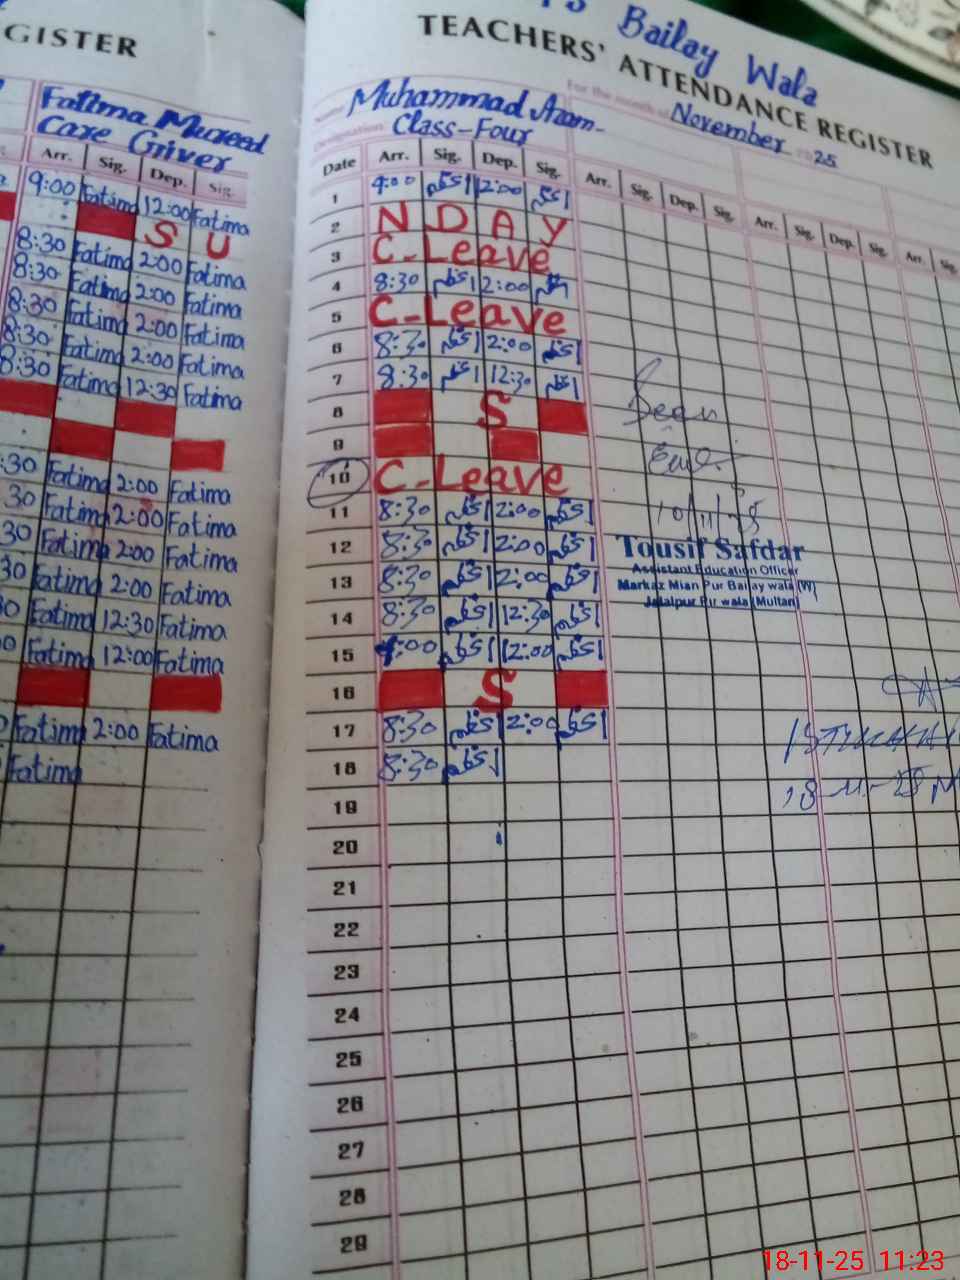 GISTER
Fatima Mureed
Care Griver
Arr. Sig. Dep. Sig.
9:00 Fatima 12:00 Fatima
S U
8:30 Fatima 2:00 Fatima
8:30 Fatima 2:00 Fatima
8:30 Fatima 2:00 Fatima
8:30 Fatima 2:00 Fatima
8:30 Fatima 12:30 Fatima
:30 Fatima 2:00 Fatima
30 Fatima 2:00 Fatima
30 Fatima 2:00 Fatima
30 Fatima 2:00 Fatima
30 Fatima 12:30 Fatima
00 Fatima 12:00 Fatima
Fatima 2:00 Fatima
Fatima
PS Bailay Wala
TEACHERS' ATTENDANCE REGISTER
Name Muhammad Azam
For the month of November 2025
Designation Class-Four
Date Arr. Sig. Dep. Sig. Arr. Sig. Dep. Sig. Arr. Sig. Dep. Sig. Arr. Sig.
1 9:00 اعظم 12:00 اعظم
2 N D A Y
3 C-Leave
4 8:30 اعظم 2:00 اعظم
5 C-Leave
6 8:30 اعظم 2:00 اعظم
7 8:30 اعظم 12:30 اعظم
8 S
9
10 C-Leave
11 8:30 اعظم 2:00 اعظم
12 8:30 اعظم 2:00 اعظم
13 8:30 اعظم 2:00 اعظم
14 8:30 اعظم 12:30 اعظم
15 9:00 اعظم 12:00 اعظم
16 S
17 8:30 اعظم 2:00 اعظم
18 8:30 اعظم
19
20
21
22
23
24
25
26
27
28
29
Seen
10/11/25
Tousif Safdar
Assistant Education Officer
Markaz Mian Pur Bailay wala (W)
Jalalpur Pir wala (Multan)
18-11-25
18-11-25 11:23